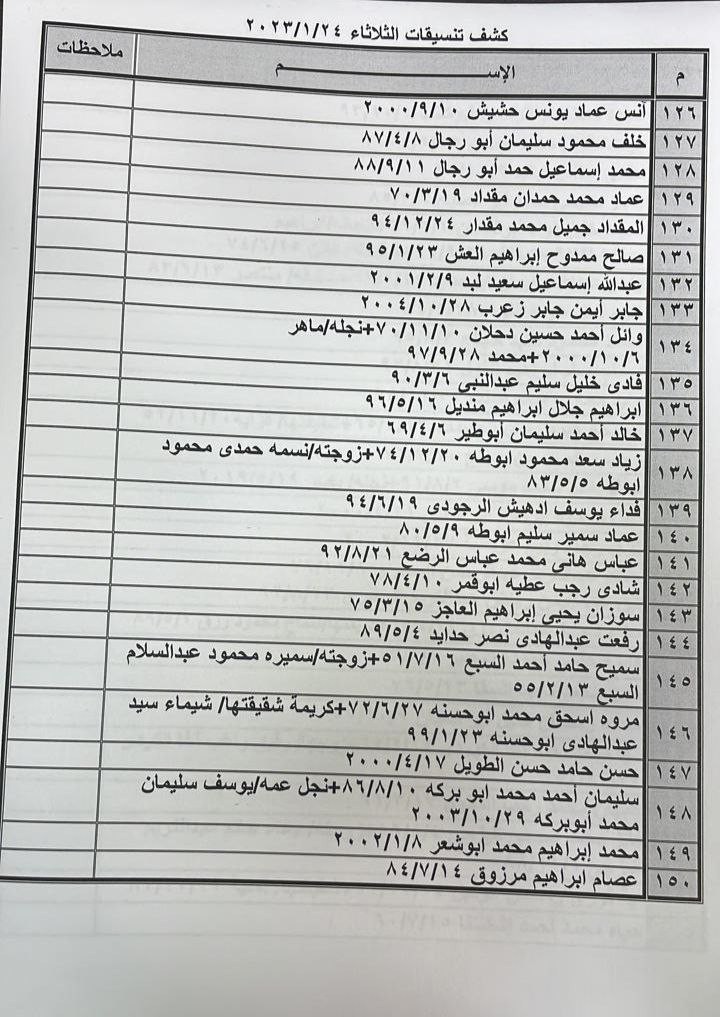 كشف تنسيقات الثلاثاء ٢٠٢٣/١/٢٤
م الإســـــــم ملاحظات
١٢٦ أنس عماد يونس حشيش ٢٠٠٠/٩/١٠
١٢٧ خلف محمود سليمان أبو رجال ٨٧/٤/٨
١٢٨ محمد إسماعيل حمد أبو رجال ٨٨/٩/١١
١٢٩ عماد محمد حمدان مقداد ٧٠/٣/١٩
١٣٠ المقداد جميل محمد مقدار ٩٤/١٢/٢٤
١٣١ صالح ممدوح إبراهيم العش ٩٥/١/٢٣
١٣٢ عبدالله إسماعيل سعيد لبد ٢٠٠١/٢/٩
١٣٣ جابر أيمن جابر زعرب ٢٠٠٤/١٠/٢٨
١٣٤ وائل أحمد حسين دحلان ٧٠/١١/١٠+نجله/ماهر
٢٠٠٠/١٠/٦+محمد ٩٧/٩/٢٨
١٣٥ فادى خليل سليم عبدالنبي ٩٠/٣/٦
١٣٦ ابراهيم جلال ابراهيم منديل ٩٦/٥/١٦
١٣٧ خالد أحمد سليمان أبوطير ٦٩/٤/٦
١٣٨ زياد سعد محمود ابوطه ٧٤/١٢/٢٠+زوجته/نسمه حمدى محمود
ابوطه ٨٣/٥/٥
١٣٩ فداء يوسف ادهيش الرجودى ٩٤/٦/١٩
١٤٠ عماد سمير سليم ابوطه ٨٠/٥/٩
١٤١ عباس هانى محمد عباس الرضع ٩٢/٨/٢١
١٤٢ شادى رجب عطيه ابوقمر ٧٨/٤/١٠
١٤٣ سوزان يحيى إبراهيم العاجز ٧٥/٣/١٥
١٤٤ رفعت عبدالهادى نصر حدايد ٨٩/٥/٤
١٤٥ سميح حامد أحمد السبع ٥١/٧/١٦+زوجته/سميره محمود عبدالسلام
السبع ٥٥/٢/١٣
١٤٦ مروه اسحق محمد ابوحسنه ٧٢/٦/٢٧+كريمة شقيقتها/ شيماء سيد
عبدالهادى ابوحسنه ٩٩/١/٢٣
١٤٧ حسن حامد حسن الطويل ٢٠٠٠/٤/١٧
١٤٨ سليمان أحمد محمد ابو بركه ٨٦/٨/١٠+نجل عمه/يوسف سليمان
محمد أبوبركه ٢٠٠٣/١٠/٢٩
١٤٩ محمد إبراهيم محمد ابوشعر ٢٠٠٢/١/٨
١٥٠ عصام ابراهيم مرزوق ٨٤/٧/١٤